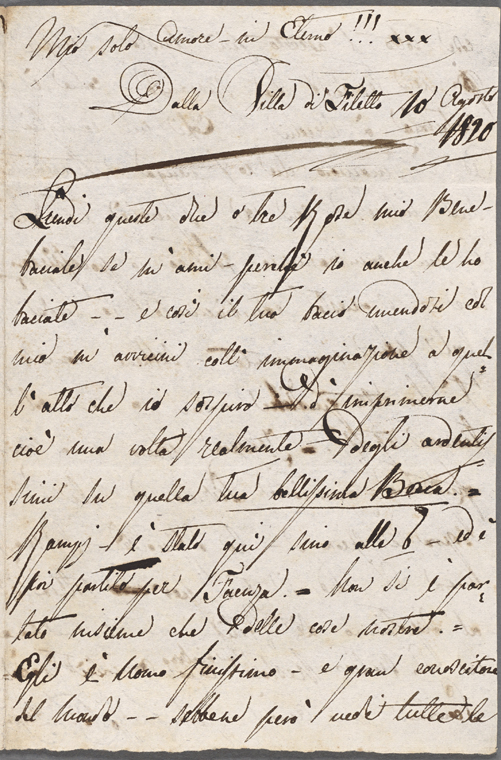 Mio solo Amore - in Eterno!!! xxx
Dalla Villa di Filetto 10 Agosto
1820
Prendi queste due o tre Rose mio Bene -
baciale se m'ami - perchè io anche le ho
baciate - - e così il tuo bacio unendosi col
mio m'avvicini coll' immaginazione a quel=
l'atto che io sospiro - d'imprimerne
cioè una volta realmente - degli ardentis
simi su quella tua bellissima Bocca. =
Rampj - è stato quì sino alle 6 - ed è
poi partito per Faenza. = Non si è par=
lato insieme che delle cose nostre. =
Egli è Uomo finissimo - e gran conoscitore
del mondo - - sebbene però vede tutte le